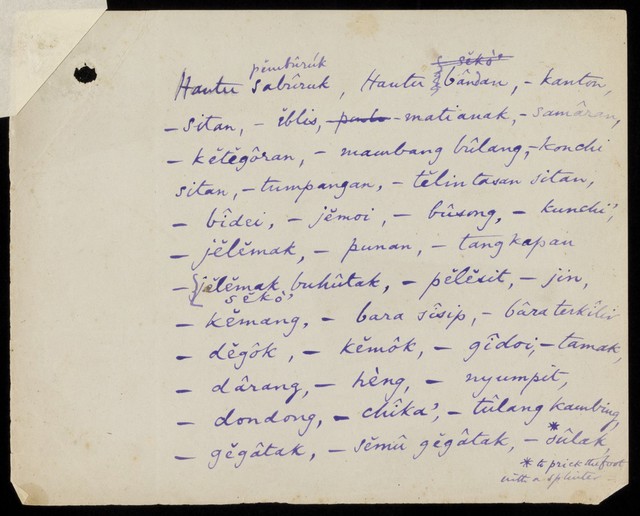 pĕmbûrúk ~~sĕkò'~~
Hantu sabûruk, Hantu bândan, - kanton,
- sitan, - ĕblis, - matianak, - samâran,
- kĕtĕgôran, - mambang bûlang, - konchi
sitan, - tumpangan, - tĕlintasan sitan,
- bîdei, - jĕmoi, - bûsong, - kunchi',
- jĕlĕmak, - punan, - tangkapan
- jĕlĕmak buhûtak, - pĕlĕsit, - jin,
sĕkò'
- kĕmang, - bara sîsip, - bâra terkîlir
- dĕgôk, - kĕmôk, - gîdoi, - tamak,
- dârang, - hèng, - nyumpit,
- dondong, - chîka', - tûlang kambing,
- gĕgâtak, - sĕmû gĕgâtak, - *sûlak,
* to prick the foot
with a splinter -